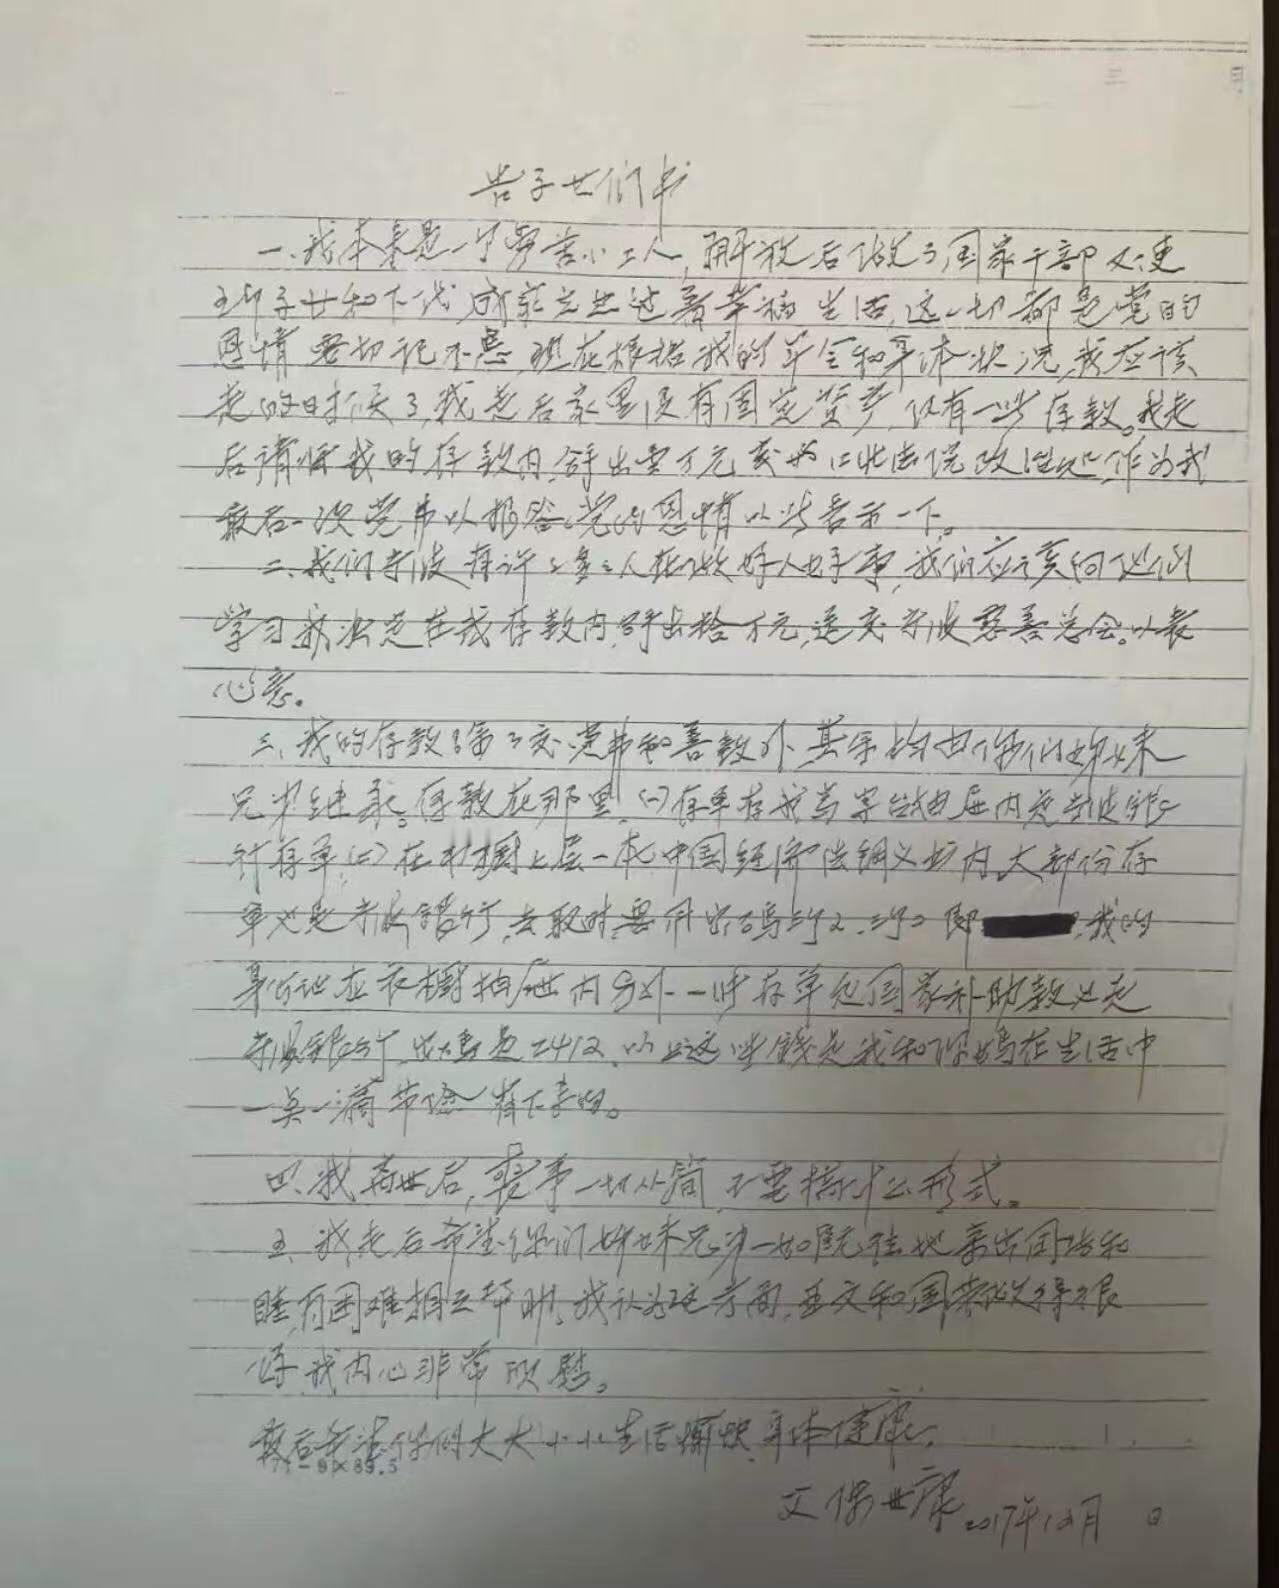 三 月
告子女们书
一、我本来是一个劳苦小工人,解放后做了国家干部又使
子女和下代成家立业过着幸福生活,这一切都是党的
恩情要切记不忘,现在根据我的年令和身体状况,我应该
走的时候了,我走后家里没有固定资产,仅有一些存款。我走
后请将我的存款内,拿出壹万元交给江北法院政治处,作为我
最后一次党费以报答党的恩情以此表示一下。
二、我们宁波有许许多多人在做好人好事,我们应该向他们
学习,我决定在我存款内,拿出拾万元,送交宁波慈善总会。以表
心意。
三、我的存款除了交党费和善款外,其余均由你们姊妹
兄弟继承。存款在那里,(一)存单存我写字台抽屉内是宁波银
行存单,(二)在衣橱上层一本中国经济法纲义书内,大部份存
单也是宁波银行,去取时,要用密码 即 我的
身份证在衣橱抽屉内另外一些存单包国家补助款也是
宁波银行,密码是2412,以上这些钱是我和你妈在生活中
一点一滴节俭省下来的。
四、我离世后,丧事一切从简,不要搞什么形式。
五、我走后希望你们姊妹兄弟一如既往地亲密团结和
睦,有困难相互帮助,我认为这方面,亚文和国荣做得很
好,我内心非常欣慰。
最后希望你们大大小小生活愉快,身体健康。
-91×89.5
父 保世康 2017年12月 日